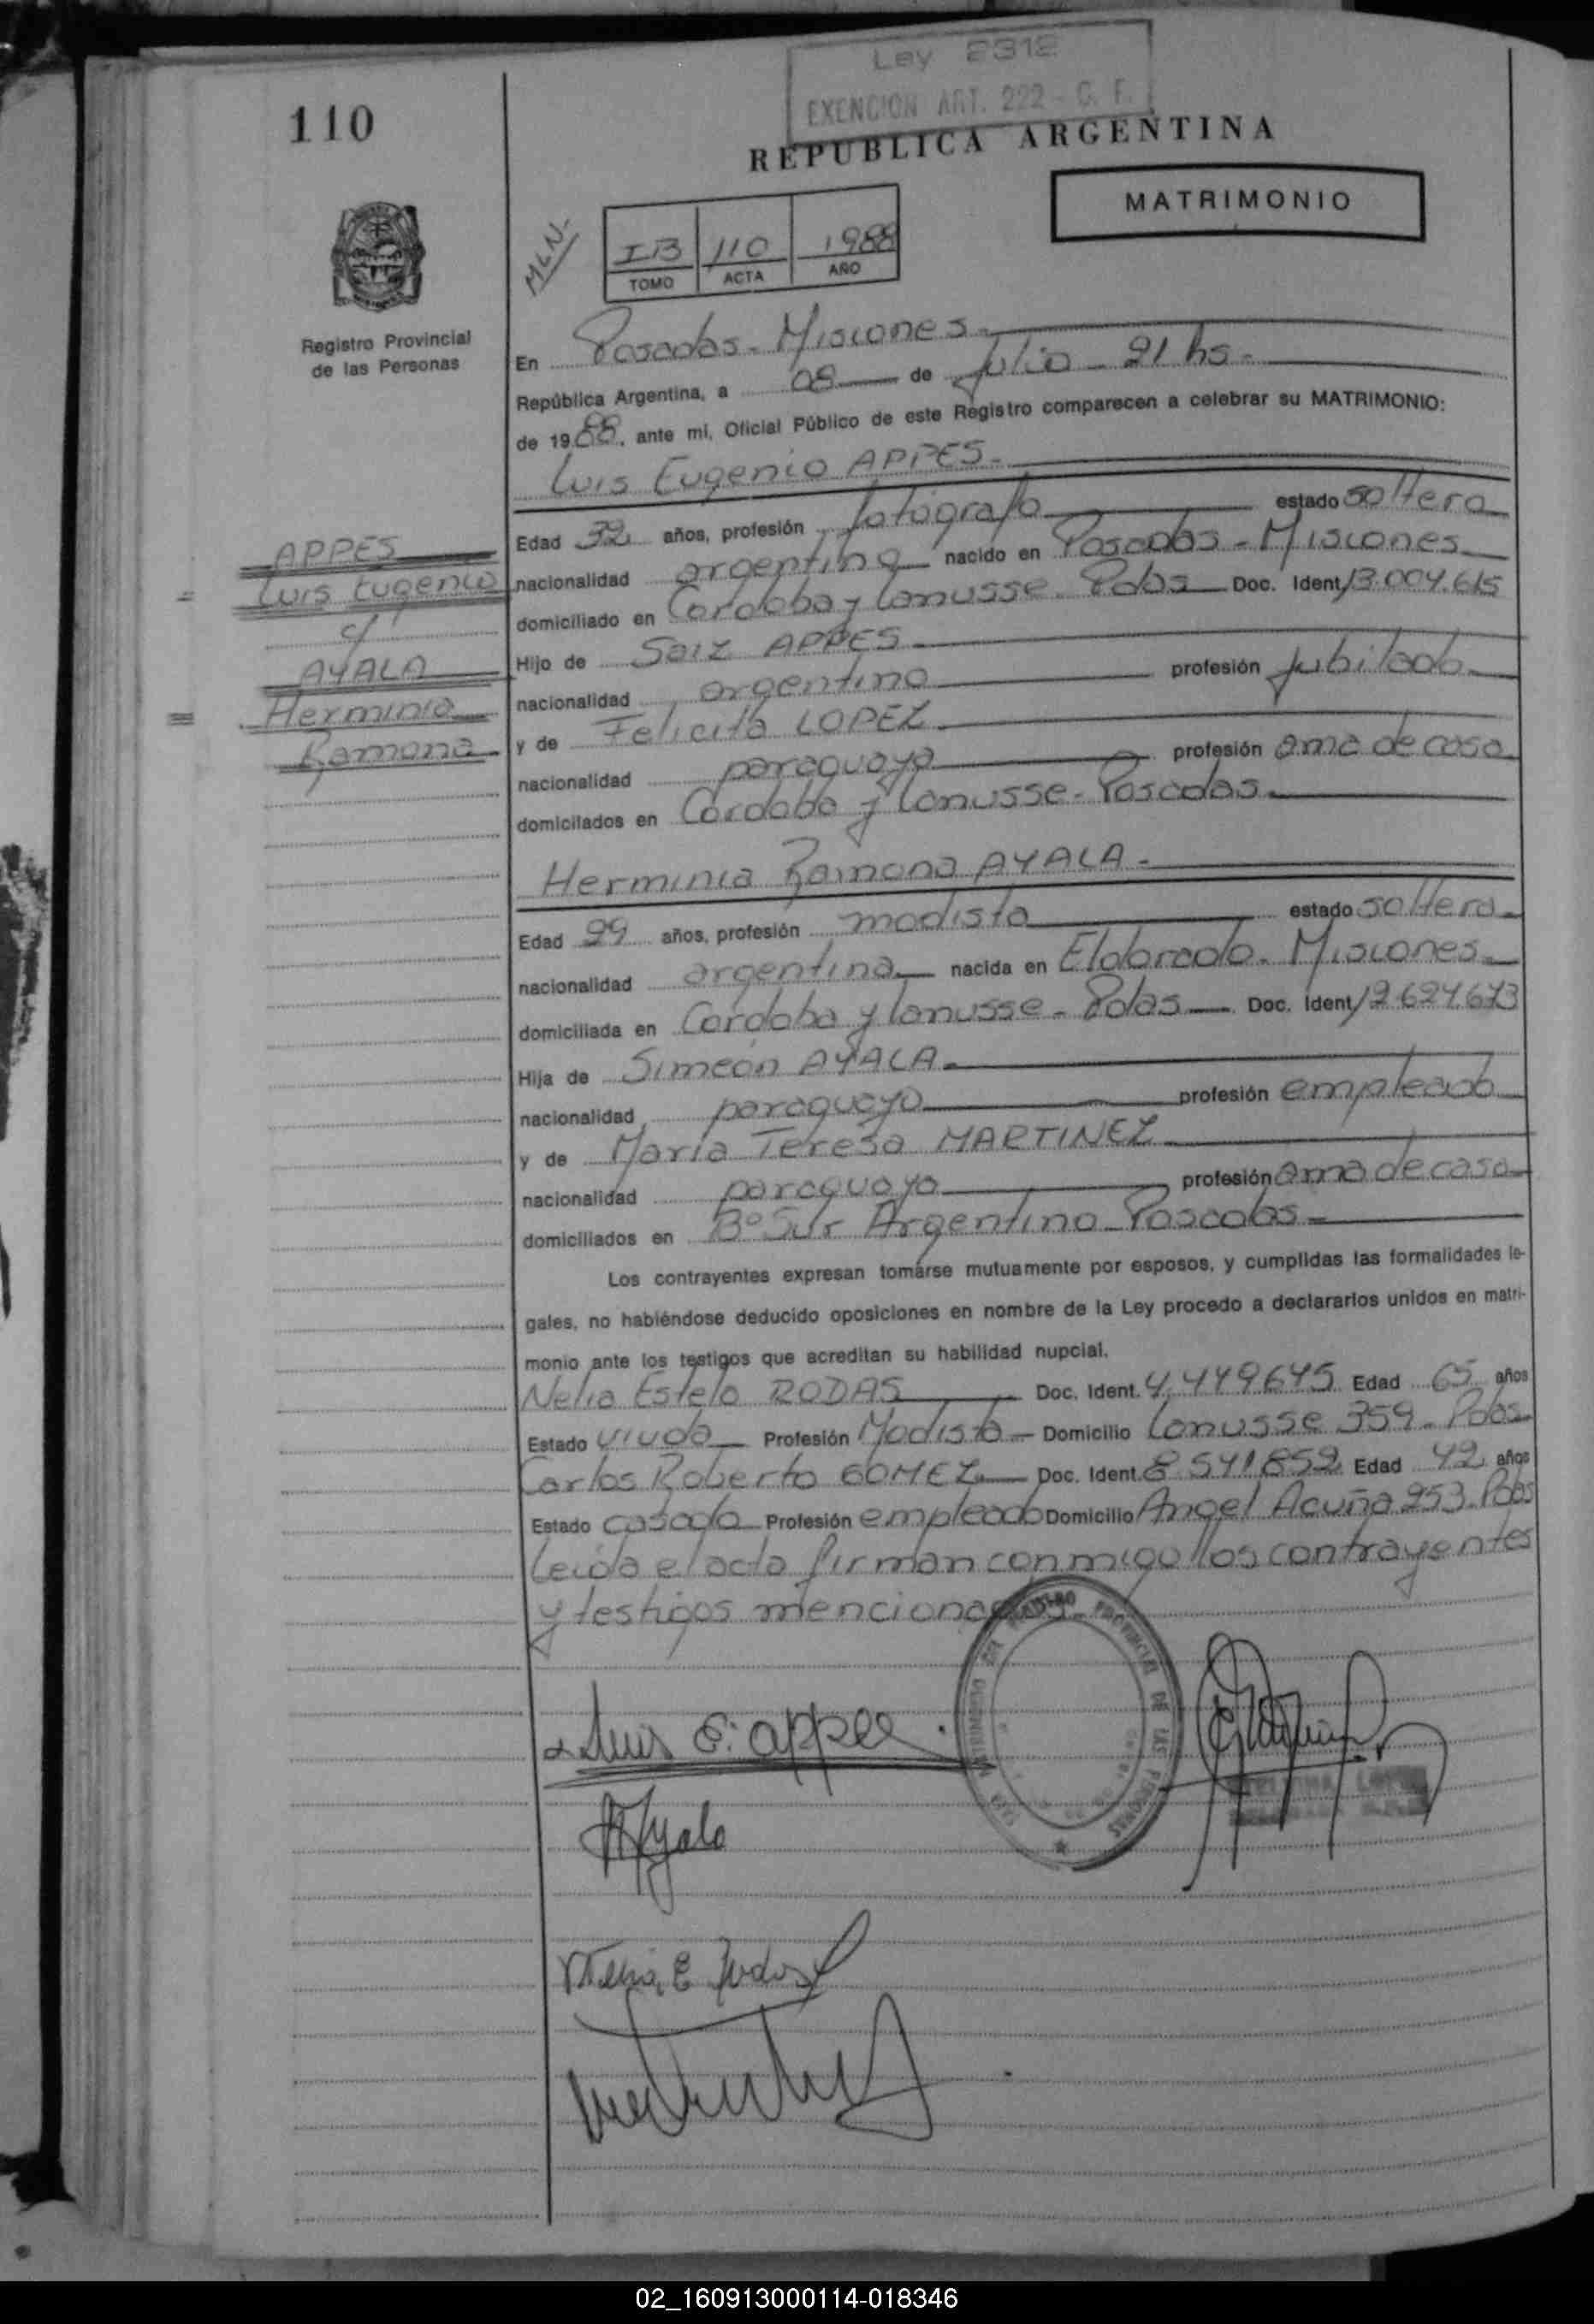 Ley 2312
EXENCION ART. 222 - C. F.
110
REPUBLICA ARGENTINA
MATRIMONIO
MLN-
IB 110 1988
TOMO ACTA AÑO
Registro Provincial
de las Personas
En Posadas - Misiones -
República Argentina, a 08 de Julio - 21 hs -
de 1988, ante mí, Oficial Público de este Registro comparecen a celebrar su MATRIMONIO:
Luis Eugenio APPES -
Edad 32 años, profesión fotógrafo estado soltero
nacionalidad argentino nacido en Posadas - Misiones
domiciliado en Córdoba y Lanusse - Pdas Doc. Ident. 13.004.615
Hijo de Saiz APPES
nacionalidad argentino profesión jubilado
y de Felicita LOPEZ
nacionalidad paraguaya profesión ama de casa
domiciliados en Córdoba y Lanusse - Posadas
APPES
Luis Eugenio
c/
AYALA
Herminia
Ramona
Herminia Ramona AYALA -
Edad 29 años, profesión modista estado soltera
nacionalidad argentina nacida en Eldorado - Misiones
domiciliada en Córdoba y Lanusse - Pdas Doc. Ident. 12.624.673
Hija de Simeón AYALA
nacionalidad paraguayo profesión empleado
y de María Teresa MARTINEZ
nacionalidad paraguaya profesión ama de casa
domiciliados en Bº Sur Argentino - Posadas -
Los contrayentes expresan tomarse mutuamente por esposos, y cumplidas las formalidades le-
gales, no habiéndose deducido oposiciones en nombre de la Ley procedo a declararlos unidos en matri-
monio ante los testigos que acreditan su habilidad nupcial.
Nelia Estela RODAS Doc. Ident. 4.449645 Edad 65 años
Estado viuda Profesión Modista Domicilio Lanusse 359 - Pdas
Carlos Roberto GOMEZ Doc. Ident. 8541852 Edad 42 años
Estado casado Profesión empleado Domicilio Angel Acuña 253 - Pdas
Leída el acta firman conmigo los contrayentes
y testigos mencionados -
REGISTRO PROVINCIAL DE LAS PERSONAS
Luis E. appes
HAyala
Nelia E Rodas
02_160913000114-018346